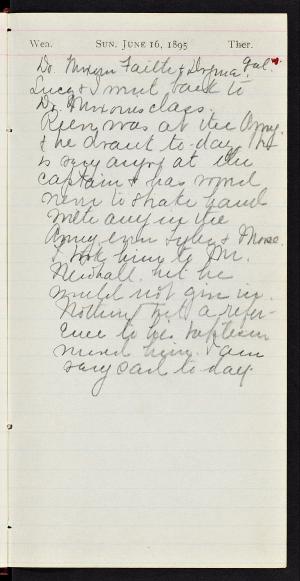 Wea. SUN. JUNE 16, 1895 Ther.
Dr. Mixim Faith & Dogma. Gal.
Lucy & I went back to
Dr. Mixoms class.
Reeny was at the Army
& he drank to-day. He
is very angry at the
captain & has vowed
never to shake hand
with any in the
Army even Lyler & Morse.
I took him to Mr.
Newhall but he
would not give in.
Nothing but a refer-
ence to his baptism
moved him. I am
very sad to-day.